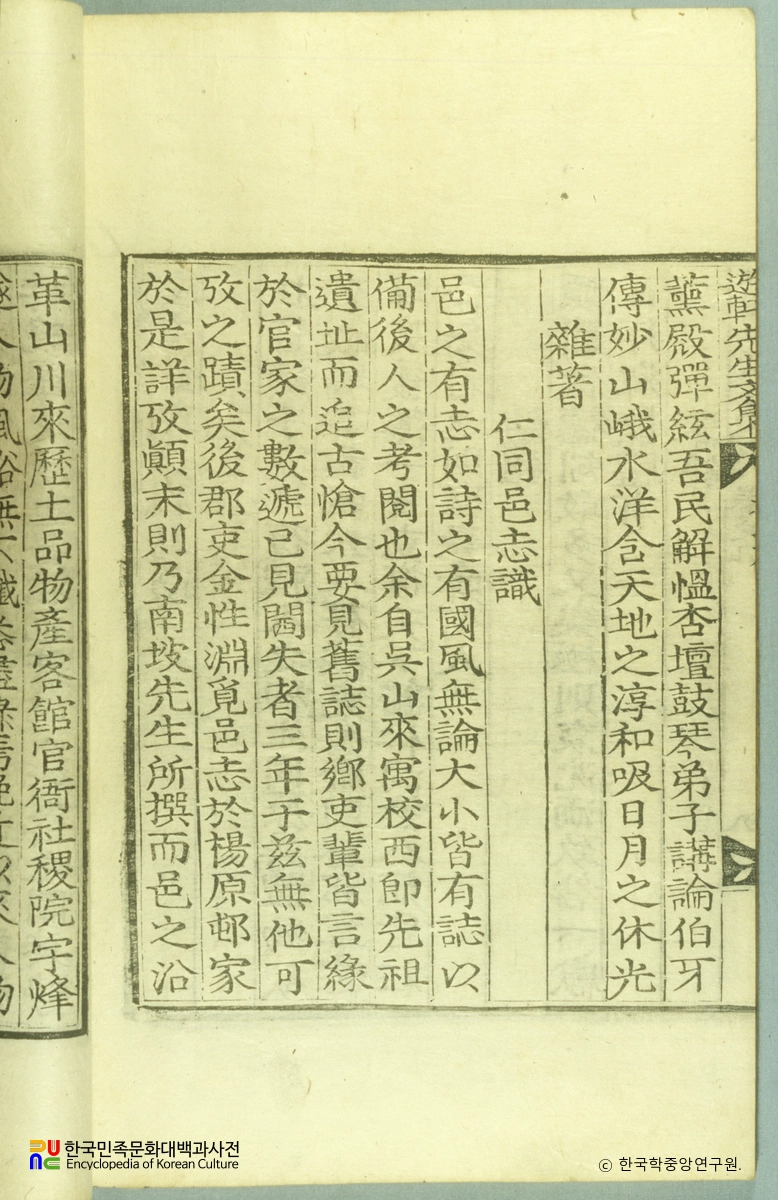 遊軒先生文集
薰殿彈絃吾民解慍杏壇鼓琴弟子講論伯牙
傳妙山峨水洋含天地之淳和吸日月之休光
雜著
仁同邑志識
邑之有志如詩之有國風無論大小皆有誌以
備後人之考閱也余自吳山來寓校西卽先祖
遺址而追古愴今要見舊誌則鄕吏輩皆言緣
於官家之數遞已見閪失者三年于玆無他可
攷之蹟矣後郡吏金性淵覓邑志於楊原邨家
於是詳攷顚末則乃南坡先生所撰而邑之沿
革山川來歷土品物產客館官衙社稷院宇烽
人物風俗無不
한국민족문화대백과사전
Encyclopedia of Korean Culture
ⓒ 한국학중앙연구원.